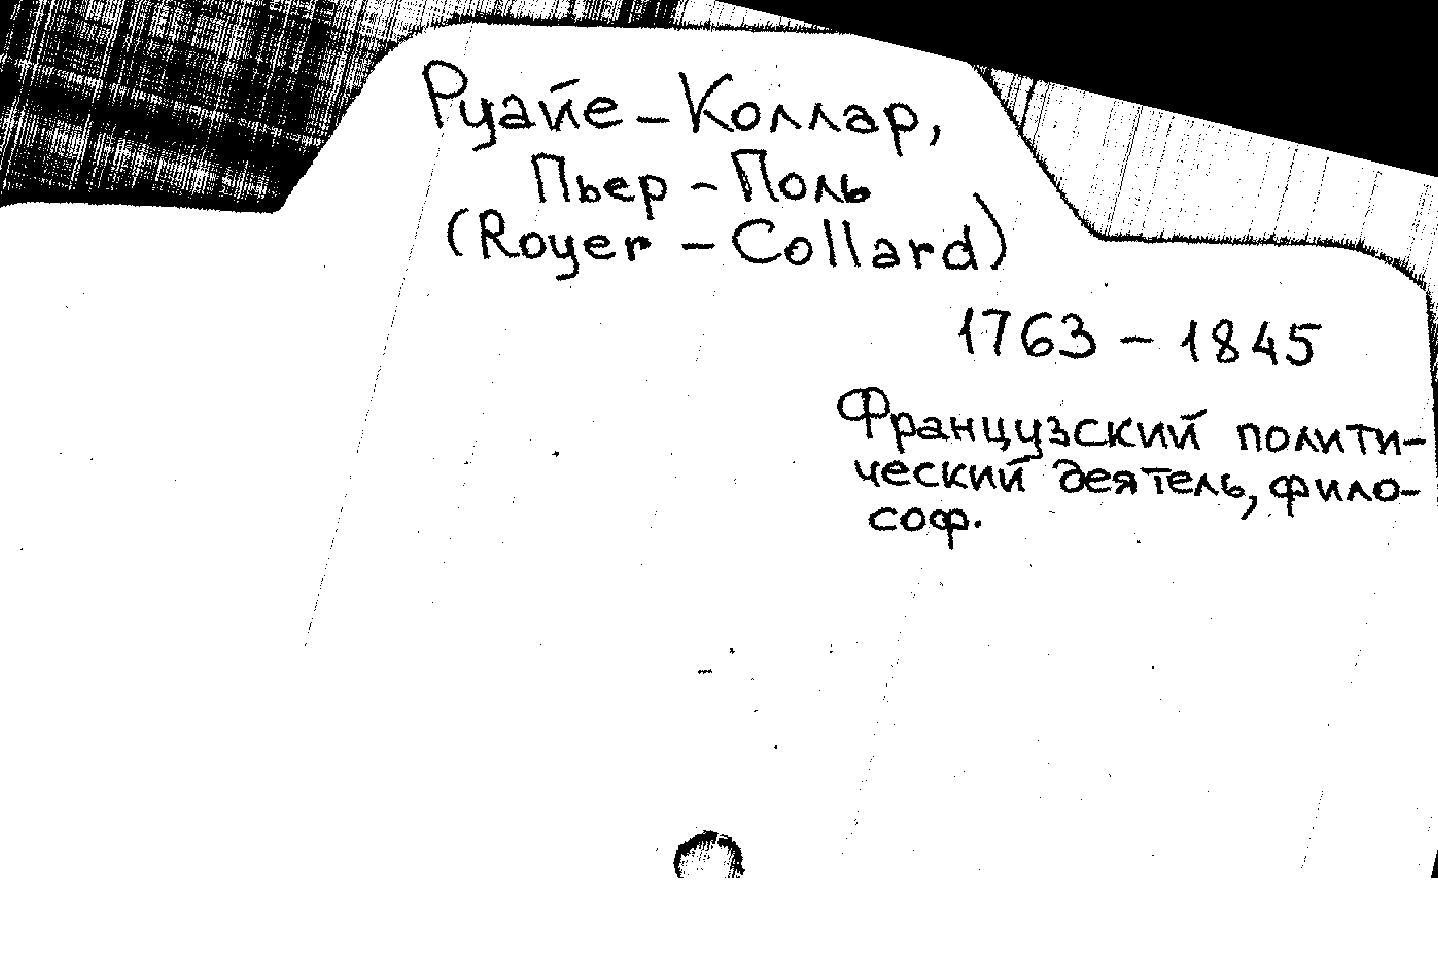 Руайе-Коллар,
Пьер-Поль
(Royer-Collard)
1763-1845
Французский полити-
ческий деятель, фило-
соф.